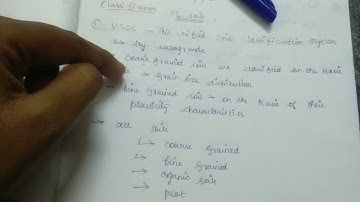 Classification of soil
① USCS - The Unified Soil Classification System
↳ by casagrande
coarse grained soils are classified on the Basis
→ Grain size distribution
→ Fine grained soil → on the Basis of their
plasticity characteristics
→ all soils
↳ coarse grained
↳ fine grained
→ organic soils
→ peat